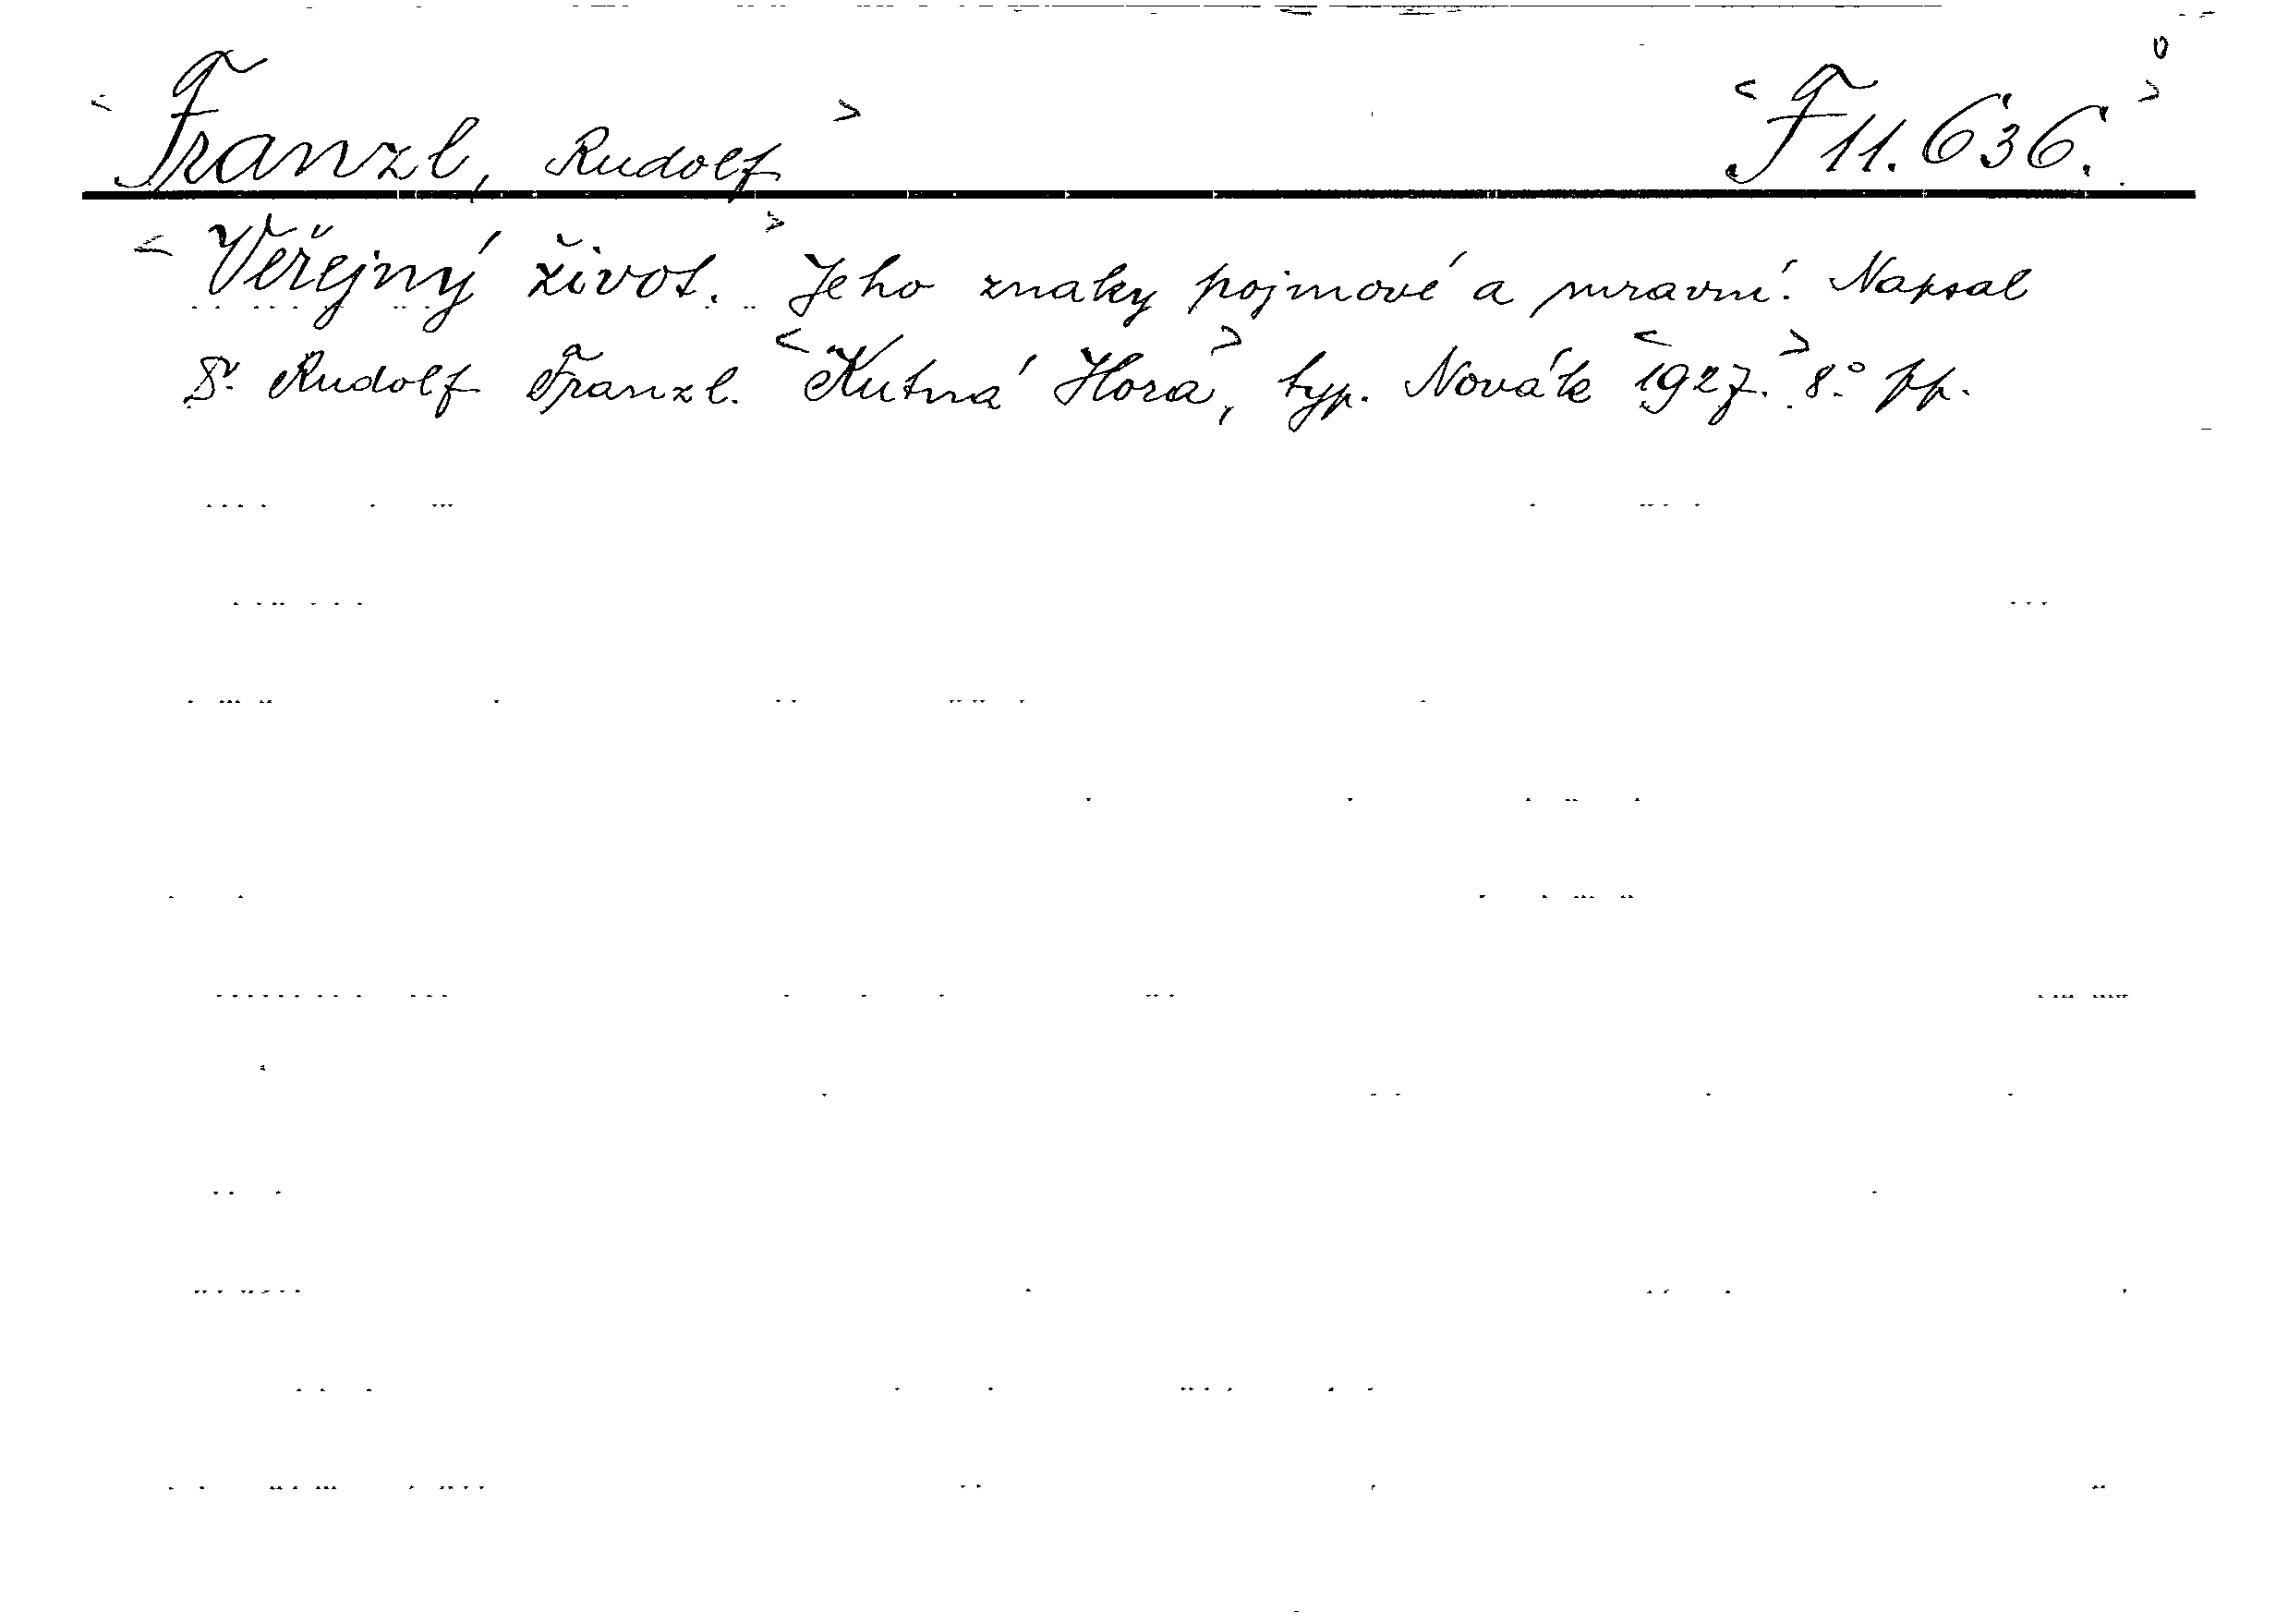 < Franzl, Rudolf > < F 11.636. >
< Veřejný život. > Jeho znaky pojmové a mravní. Napsal
Dr. Rudolf Franzl. < Kutná Hora >, typ. Novák < 1927. > 8.° pp.